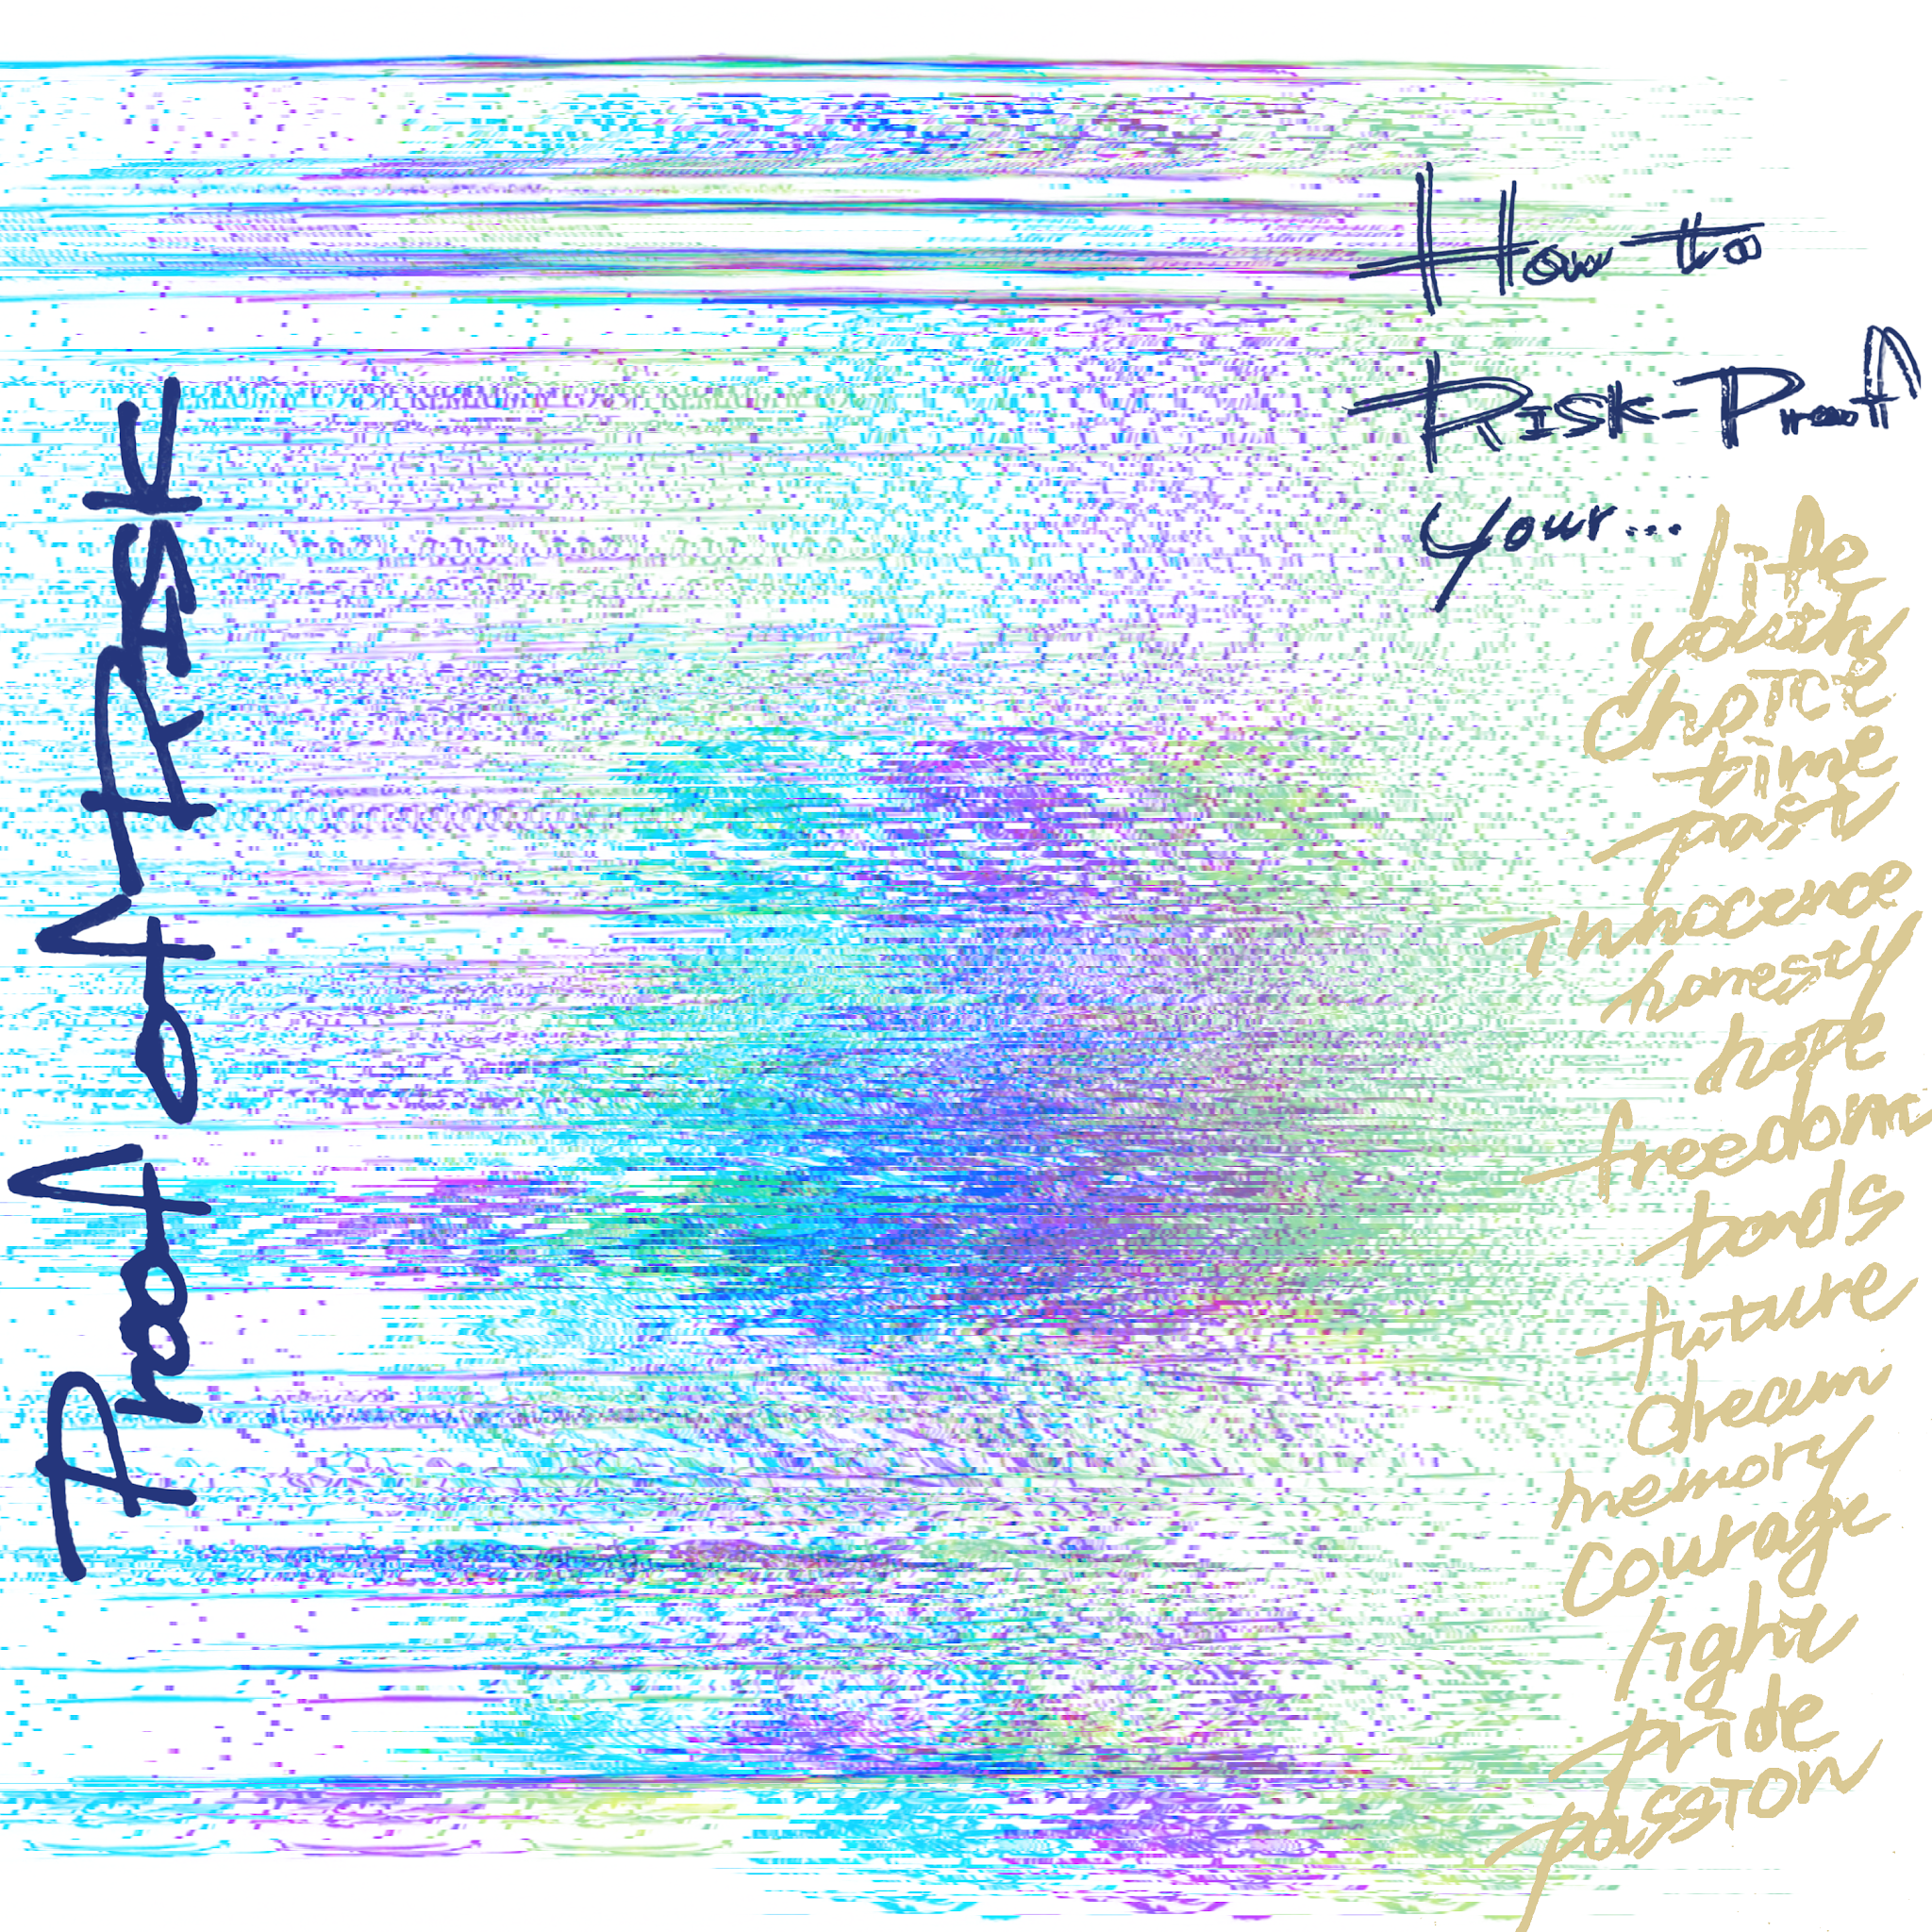 Proof of Risk
How to
Risk-Proof
Your...
life
youth
choice
time
past
innocence
honesty
hope
freedom
bonds
future
dream
memory
courage
light
pride
passion